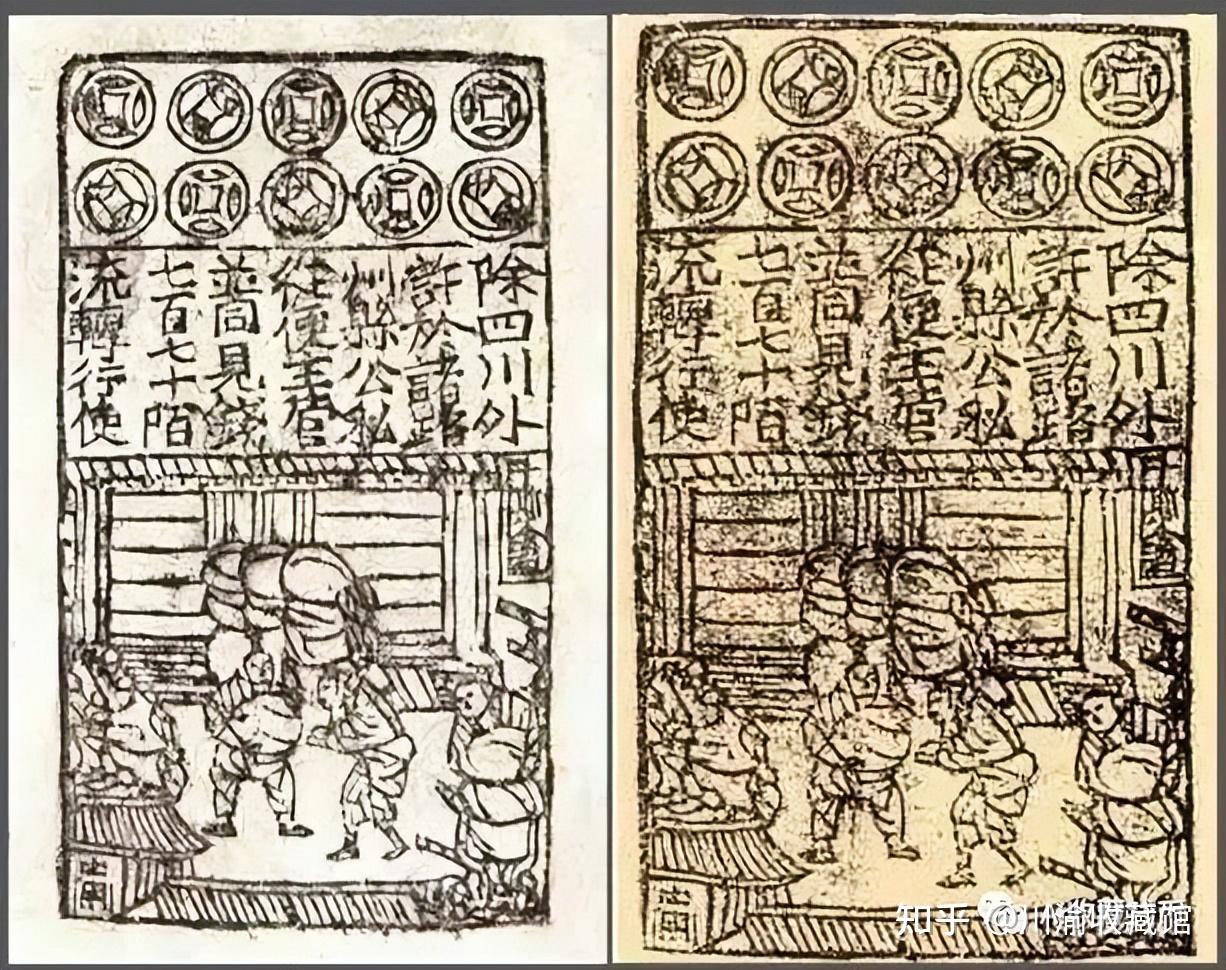 除四川外
許於諸路
州縣公私
從便主管
並同見錢
七百七十陌
流轉行使
除四川外
許於諸路
州縣公私
從便主管
並同見錢
七百七十陌
流轉行使
知乎 @川渝收藏馆